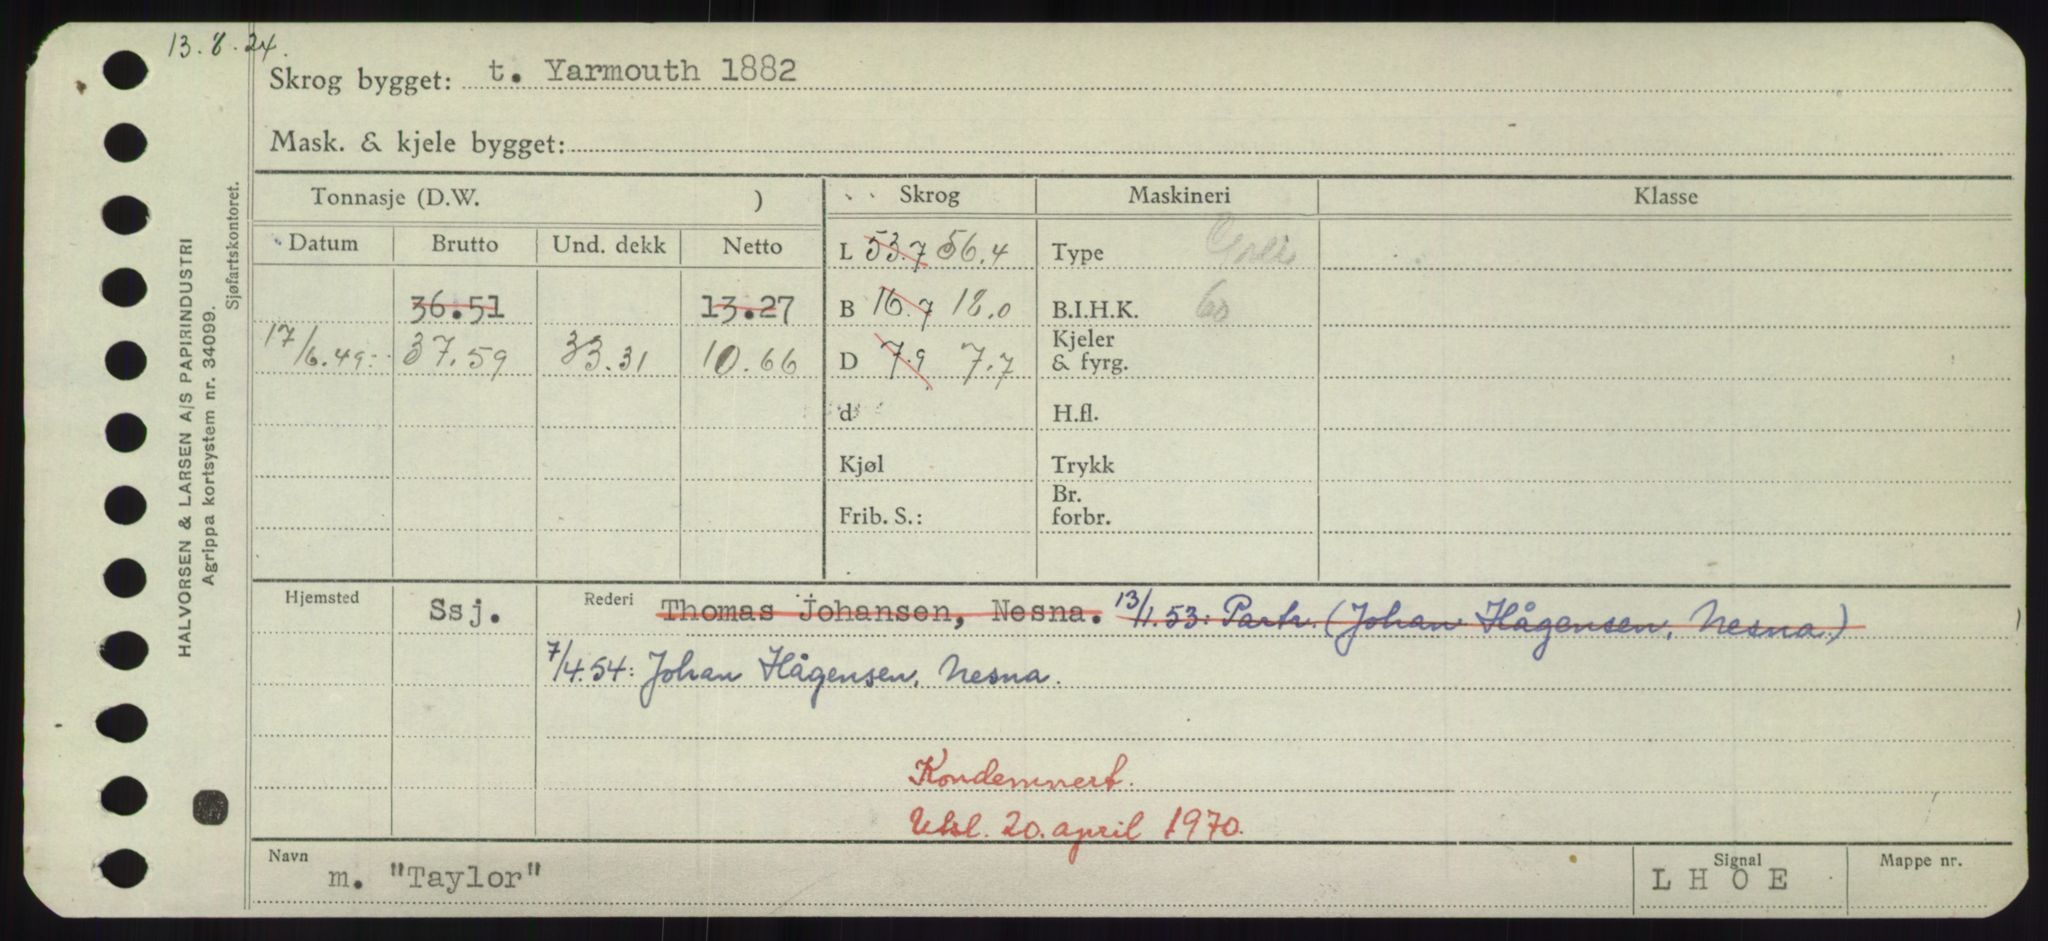 13.8.24.
Skrog bygget: t. Yarmouth 1882
Mask. & kjele bygget:
Tonnasje (D.W. ) Skrog Maskineri Klasse
Datum Brutto Und. dekk Netto L 53.7 56.4 Type
36.51 13.27 B 16.7 18.0 B.I.H.K. 60
17/6.49: 37.59 33.31 10.66 D 7.9 7.7 Kjeler & fyrg.
d H.fl.
Kjøl Trykk
Frib. S.: Br. forbr.
Hjemsted Ssj. Rederi Thomas Johansen, Nesna. 13/1.53: Partr. (Johan Hågensen, Nesna.)
7/4.54: Johan Hågensen, Nesna.
Kondemnert.
20. april 1970.
Navn m. "Taylor" Signal L H O E Mappe nr.
HALVORSEN & LARSEN A/S PAPIRINDUSTRI
Agrippa kortsystem nr. 34099.
Sjøfartskontoret.